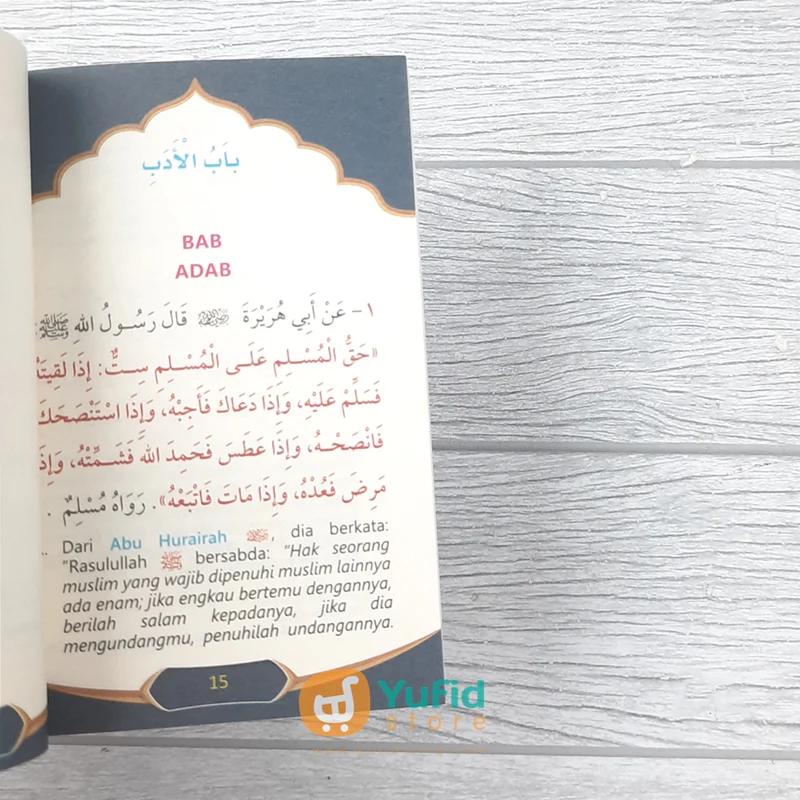 باَبُ الْأَدَبِ
BAB
ADAB
١- عَنْ أَبِي هُرَيْرَةَ ﵁ قَالَ رَسُولُ اللهِ ﷺ:
«حَقُّ الْمُسْلِمِ عَلَى الْمُسْلِمِ سِتٌّ: إِذَا لَقِيتَهُ
فَسَلِّمْ عَلَيْهِ، وَإِذَا دَعَاكَ فَأَجِبْهُ، وَإِذَا اسْتَنْصَحَكَ
فَانْصَحْهُ، وَإِذَا عَطَسَ فَحَمِدَ الله فَشَمِّتْهُ، وَإِذَا
مَرِضَ فَعُدْهُ، وَإِذَا مَاتَ فَاتْبَعْهُ». رَوَاهُ مُسْلِمٌ .
Dari Abu Hurairah ﵁, dia berkata:
"Rasulullah ﷺ bersabda: "Hak seorang
muslim yang wajib dipenuhi muslim lainnya
ada enam; jika engkau bertemu dengannya,
berilah salam kepadanya, jika dia
mengundangmu, penuhilah undangannya.
15
Yufid
store